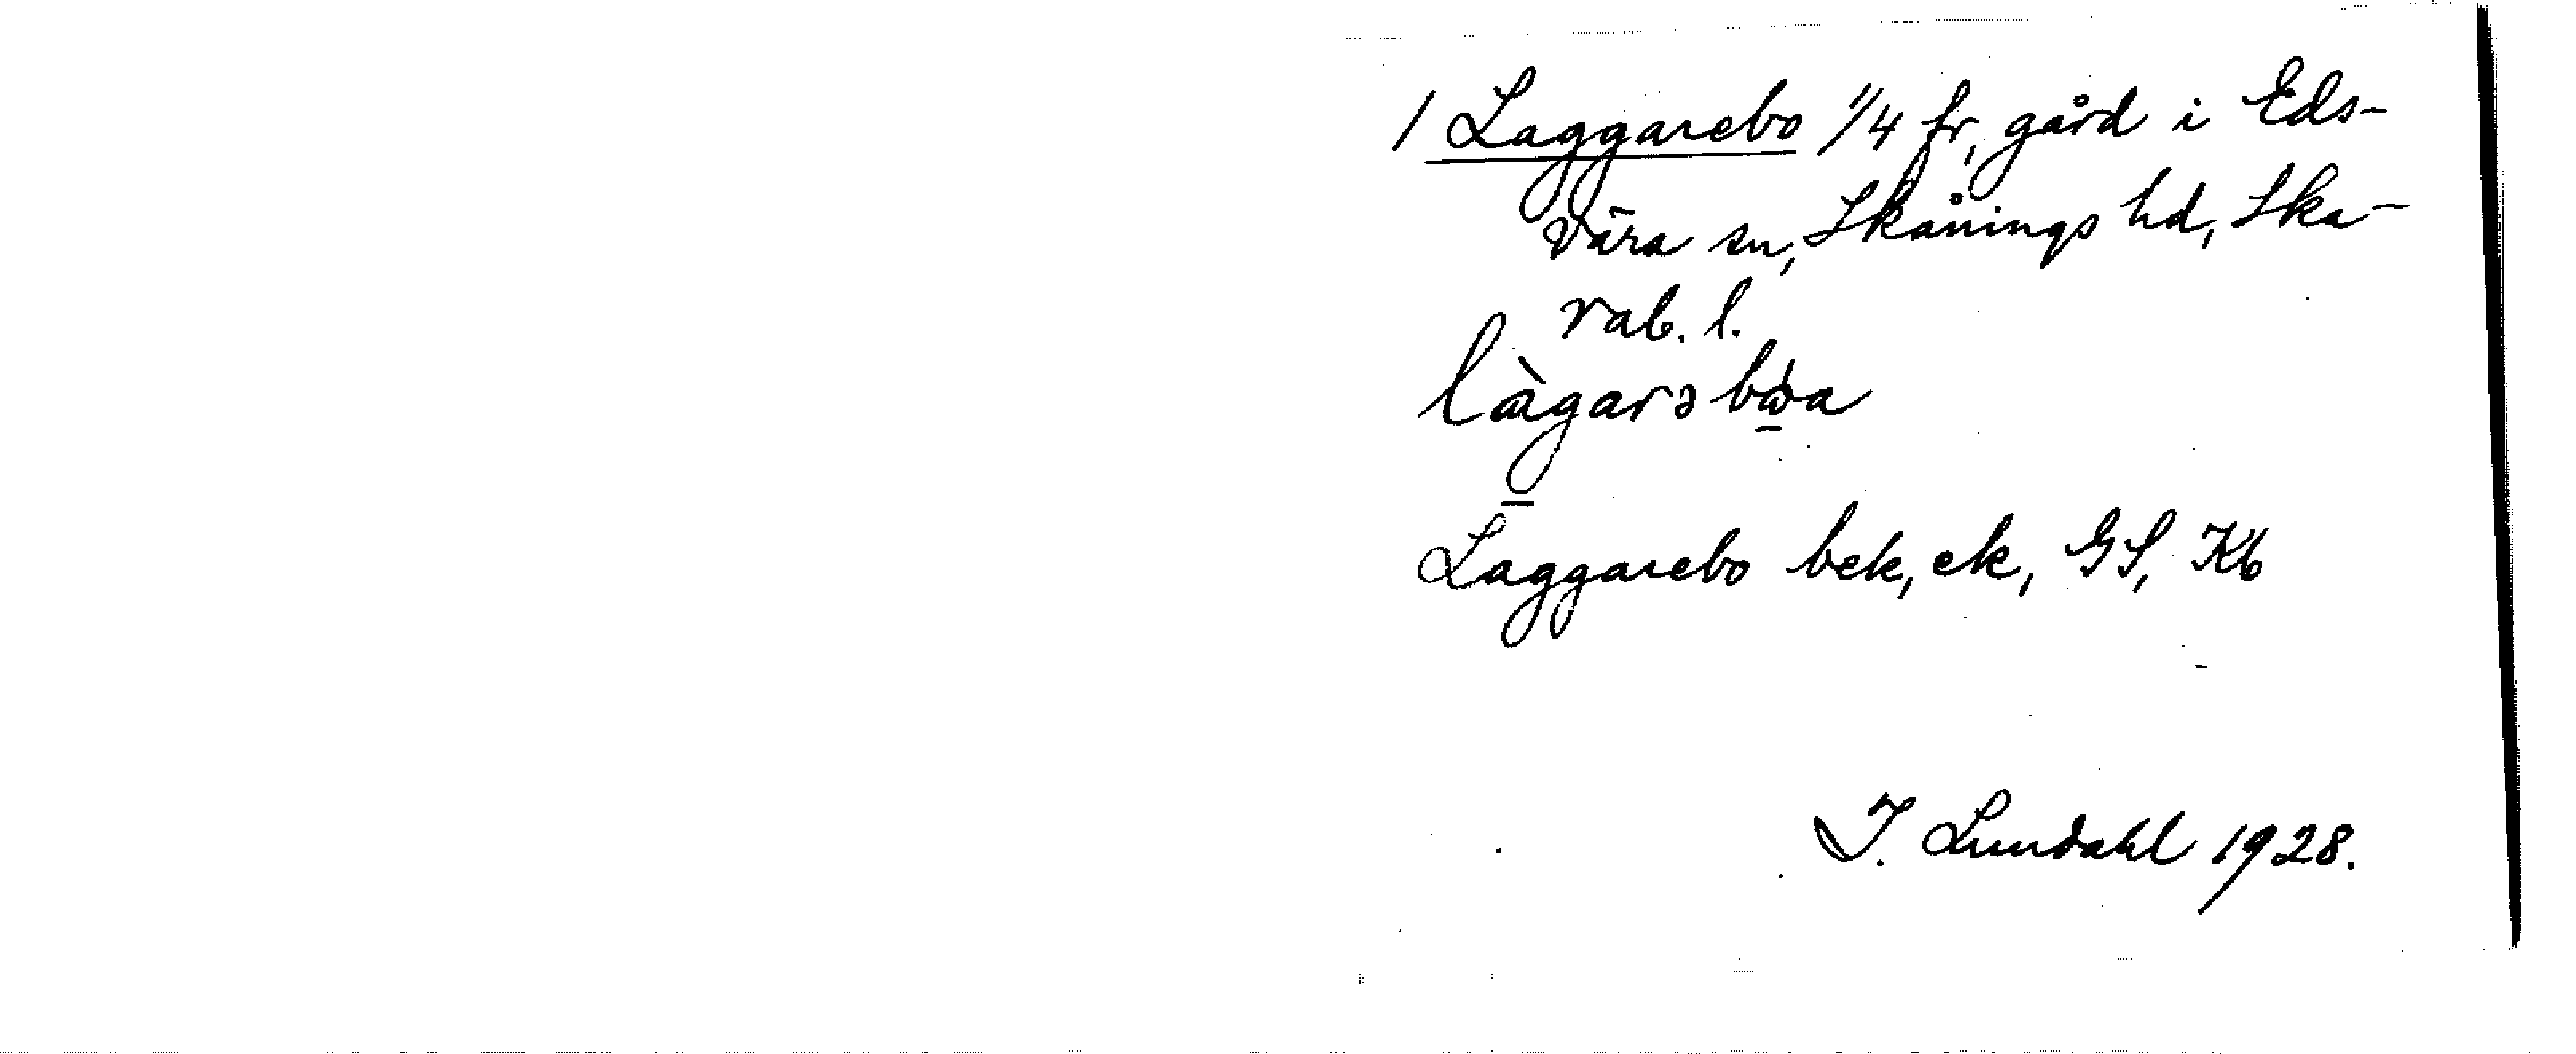 / Laggarebo 1/4 fr, gård i Eds-
vära sn, Skånings hd, Ska-
rab. l.
Laggarebo bek, ek, GS, Kb
I. Lundahl 1928.